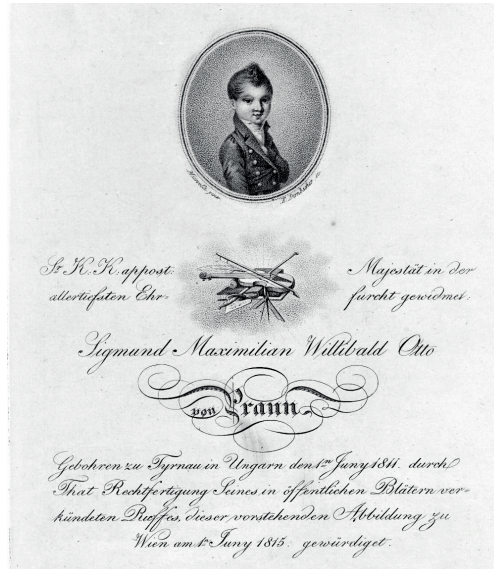 Sr. K. K. appost: Majestät in der
allertiefsten Ehr- furcht gewidmet.
Sigmund Maximilian Willibald Otto
von Praun
Gebohren zu Tyrnau in Ungarn den 1ten Juny 1811. durch
That Rechtfertigung Seines in öffentlichen Blätern ver-
kündeten Ruffes, dieser vorstehenden Abbildung zu
Wien am 1ten Juny 1815. gewürdiget.